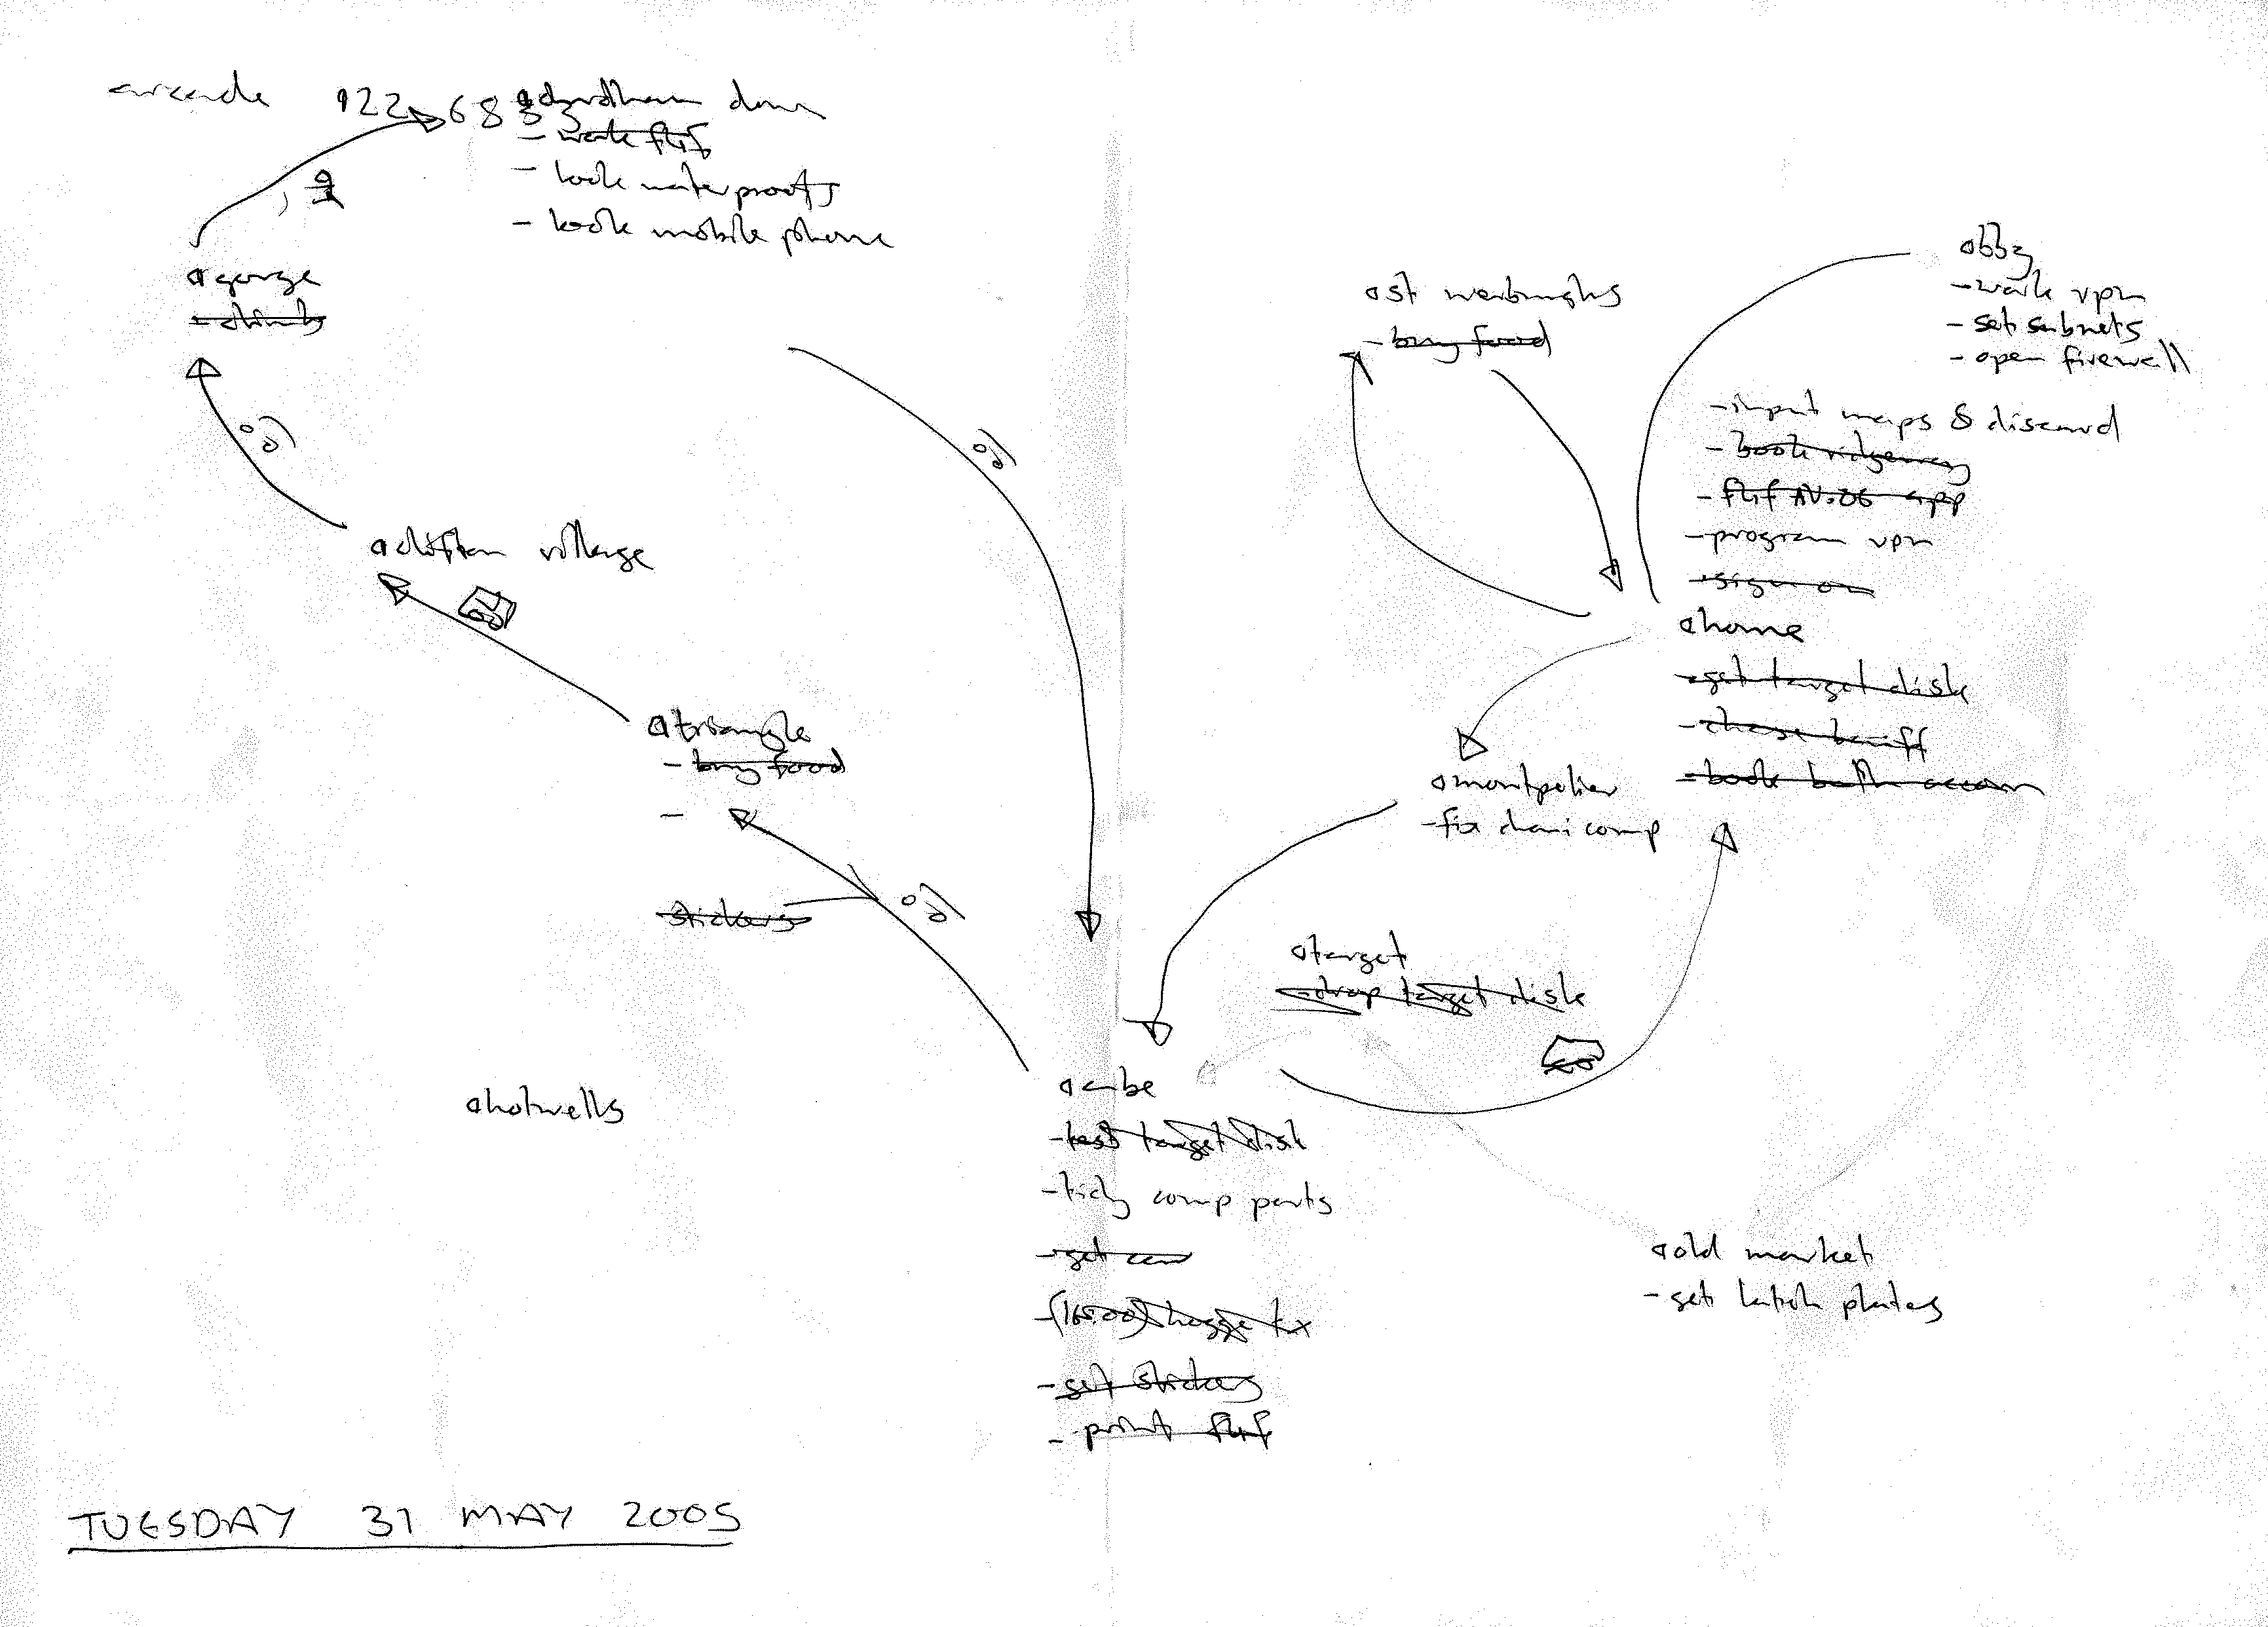 arcade 9226833
durdham down
- work flif
- look waterproofs
- look mobile phone
gorge
- climb
clifton village
triangle
- buy food
-
stickers
hotwells
st werburghs
- buy food
obby
- work vpn
- set subnets
- open firewall
- input maps & discard
- book ridgeway
- app
- program vpn
- sign on
home
- get target disk
- chase
- book bath accom
montpelier
- fix comp
target
- drop target disk
cube
- test target disk
- tidy comp parts
- get
- (16:00)
- get stickers
- print flif
old market
- get latch plates
TUESDAY 31 MAY 2005